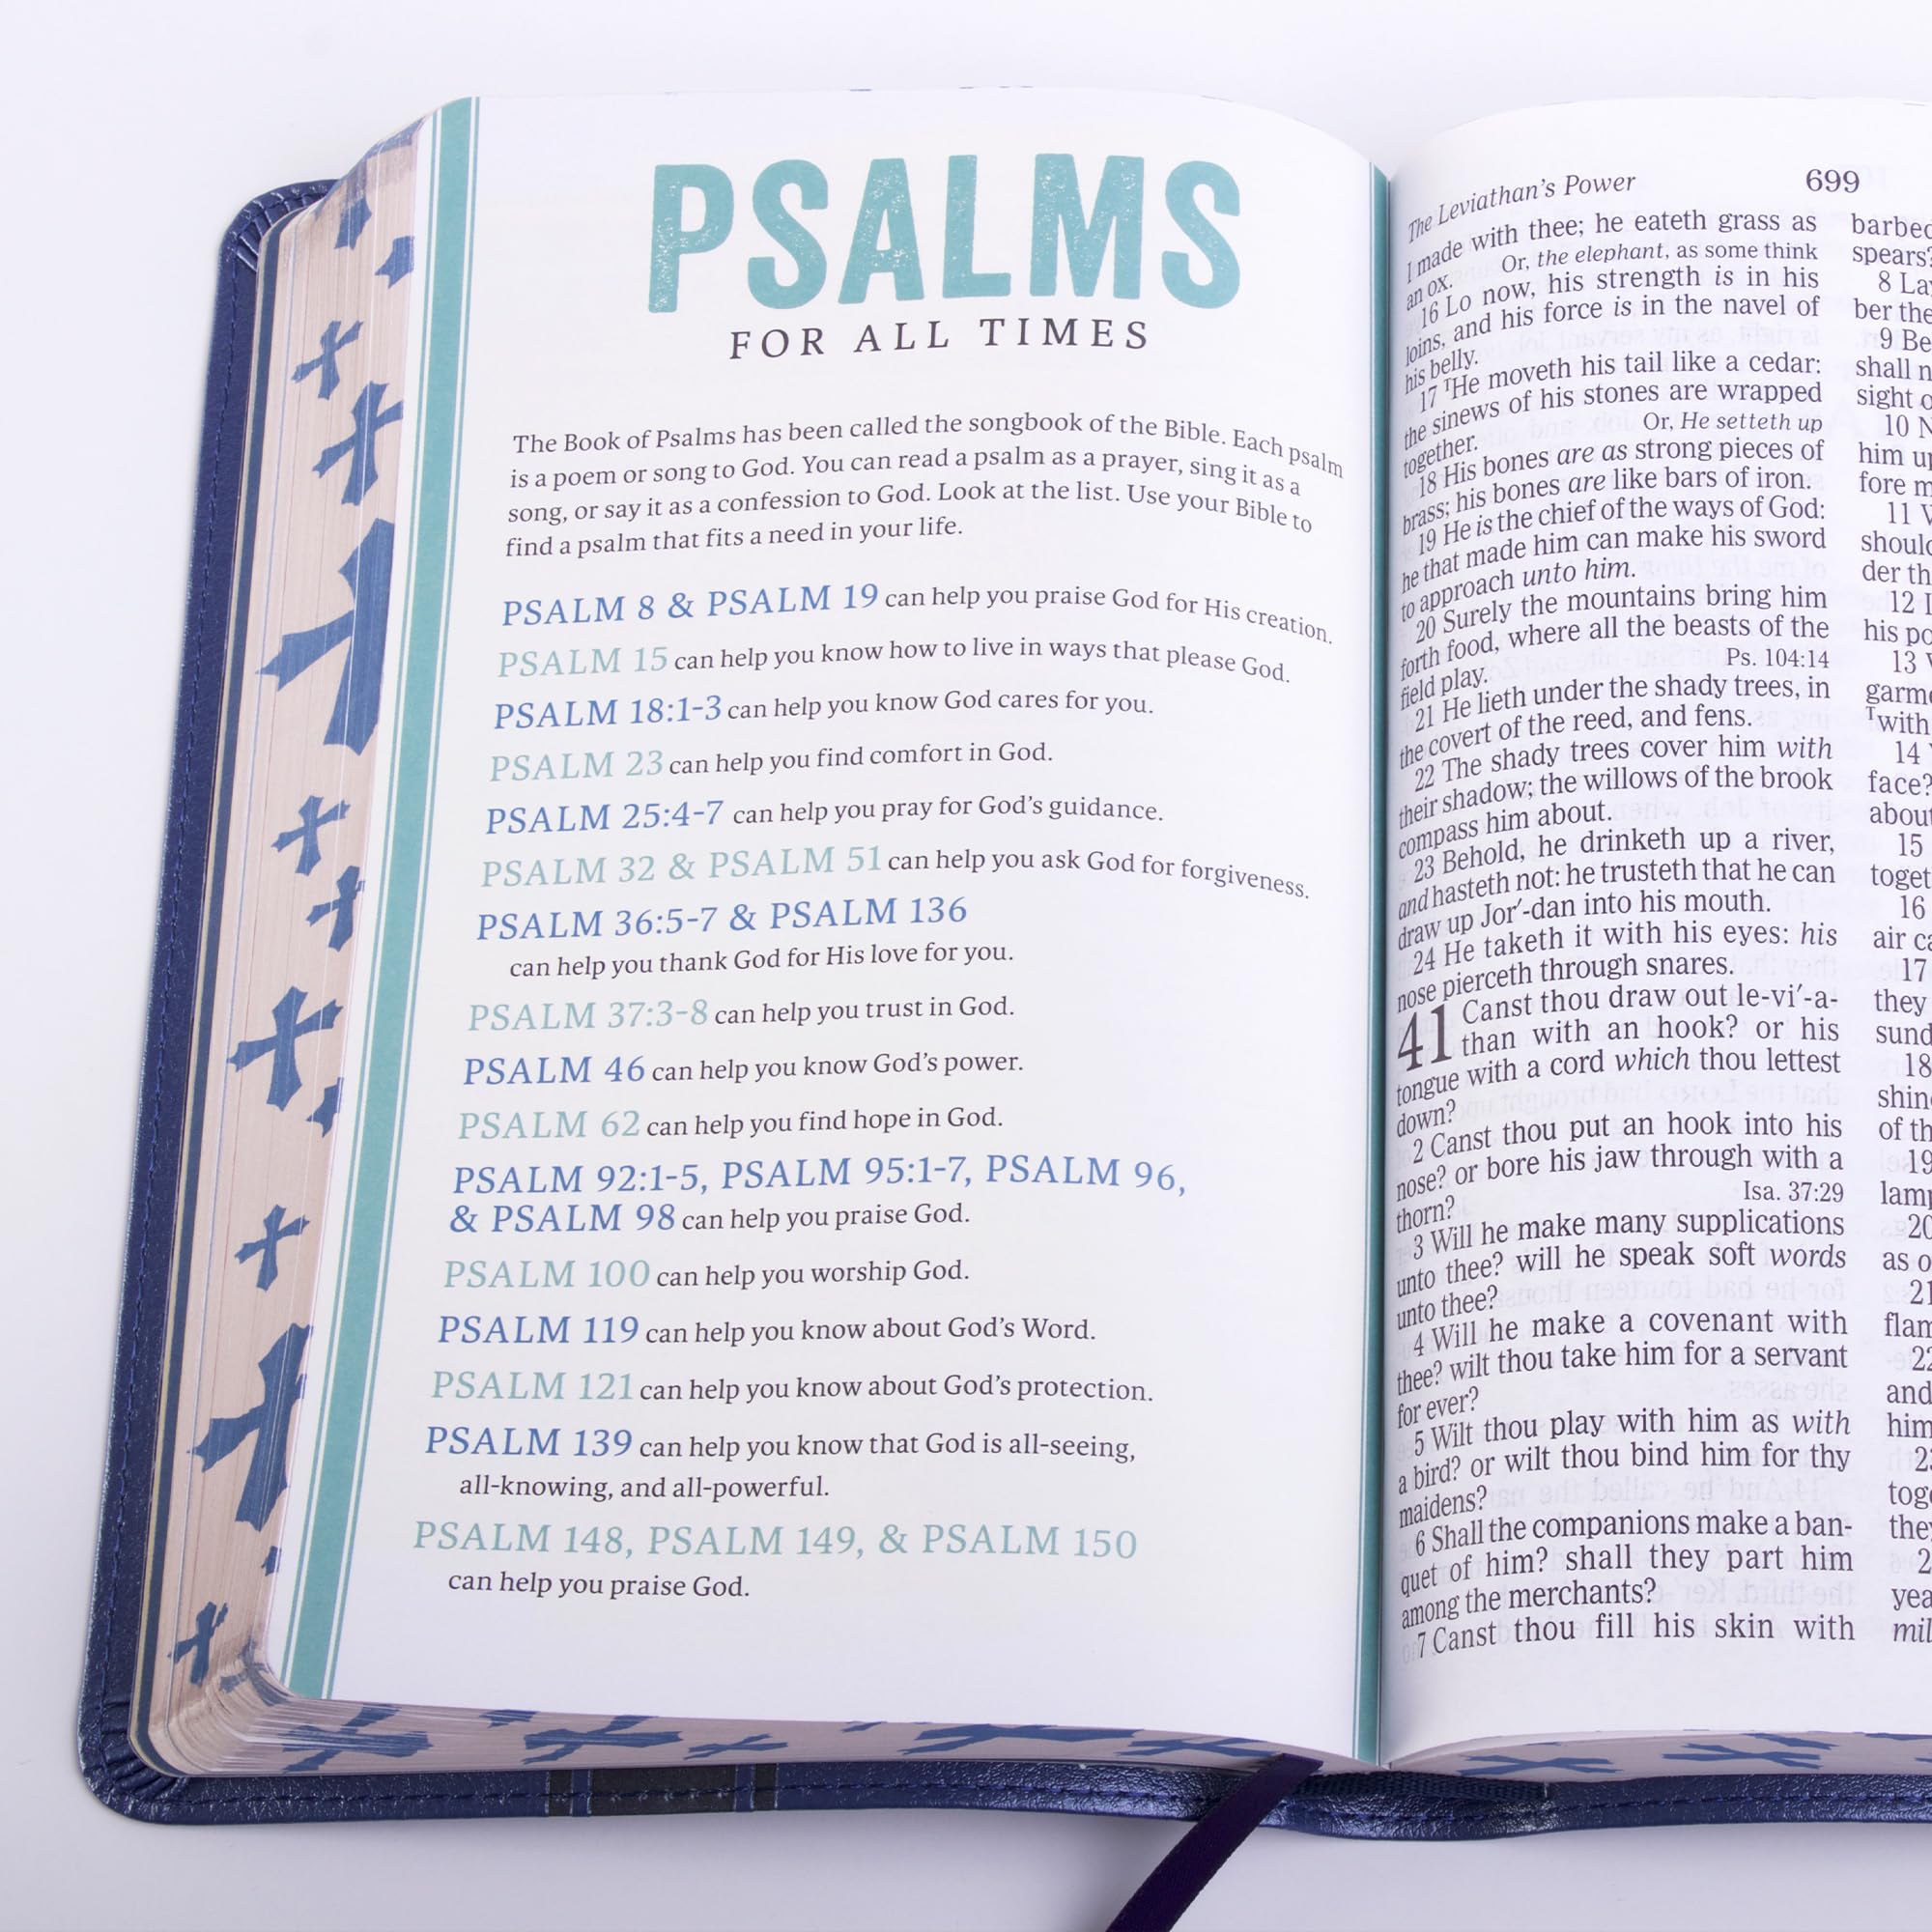 PSALMS
FOR ALL TIMES
The Book of Psalms has been called the songbook of the Bible. Each psalm
is a poem or song to God. You can read a psalm as a prayer, sing it as a
song, or say it as a confession to God. Look at the list. Use your Bible to
find a psalm that fits a need in your life.
PSALM 8 & PSALM 19 can help you praise God for His creation.
PSALM 15 can help you know how to live in ways that please God.
PSALM 18:1-3 can help you know God cares for you.
PSALM 23 can help you find comfort in God.
PSALM 25:4-7 can help you pray for God's guidance.
PSALM 32 & PSALM 51 can help you ask God for forgiveness.
PSALM 36:5-7 & PSALM 136
can help you thank God for His love for you.
PSALM 37:3-8 can help you trust in God.
PSALM 46 can help you know God's power.
PSALM 62 can help you find hope in God.
PSALM 92:1-5, PSALM 95:1-7, PSALM 96,
& PSALM 98 can help you praise God.
PSALM 100 can help you worship God.
PSALM 119 can help you know about God's Word.
PSALM 121 can help you know about God's protection.
PSALM 139 can help you know that God is all-seeing,
all-knowing, and all-powerful.
PSALM 148, PSALM 149, & PSALM 150
can help you praise God.
The Leviathan's Power 699
I made with thee; he eateth grass as
Or, the elephant, as some think
an ox.
16 Lo now, his strength is in his
loins, and his force is in the navel of
his belly.
17 ᵀHe moveth his tail like a cedar:
the sinews of his stones are wrapped
Or, He setteth up
together.
18 His bones are as strong pieces of
brass; his bones are like bars of iron.
19 He is the chief of the ways of God:
he that made him can make his sword
to approach unto him.
20 Surely the mountains bring him
forth food, where all the beasts of the
Ps. 104:14
field play.
21 He lieth under the shady trees, in
the covert of the reed, and fens.
22 The shady trees cover him with
their shadow; the willows of the brook
compass him about.
23 Behold, he drinketh up a river,
and hasteth not: he trusteth that he can
draw up Jor′-dan into his mouth.
24 He taketh it with his eyes: his
nose pierceth through snares.
41 Canst thou draw out le-vi′-a-
than with an hook? or his
tongue with a cord which thou lettest
down?
2 Canst thou put an hook into his
nose? or bore his jaw through with a
Isa. 37:29
thorn?
3 Will he make many supplications
unto thee? will he speak soft words
unto thee?
4 Will he make a covenant with
thee? wilt thou take him for a servant
for ever?
5 Wilt thou play with him as with
a bird? or wilt thou bind him for thy
maidens?
6 Shall the companions make a ban-
quet of him? shall they part him
among the merchants?
7 Canst thou fill his skin with
barbed
spears?
8 La
ber the
9 Be
shall n
sight o
10 N
him up
fore m
11 W
should
der th
12 I
his po
13 W
garme
ᵀwith
14
face?
about
15
toget
16
air ca
17
they
sund
18
shin
of th
19
lamp
20
as o
21
flam
22
and
him
23
toge
they
2
yea
mil